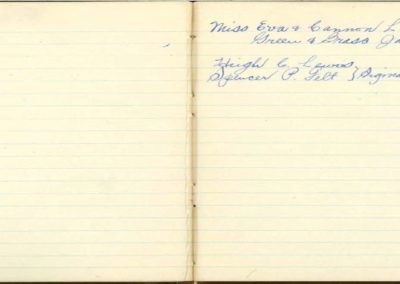 Miss Eva & Cannon L
Green & Grass Ja
Hugh C. Lewis
Spencer P. Felt } Signa